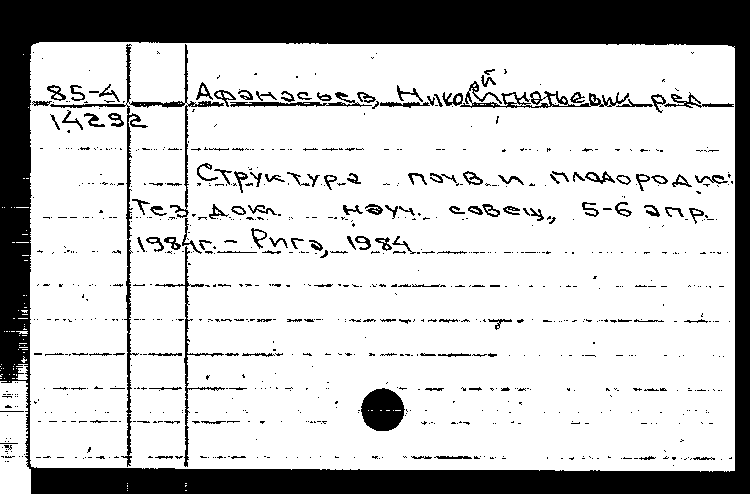 85-4 Афанасьев, Николай Игнатьевич ред
14292
Структура почв и плодородие:
Тез. докл. науч. совещ., 5-6 апр.
1984г. - Рига, 1984